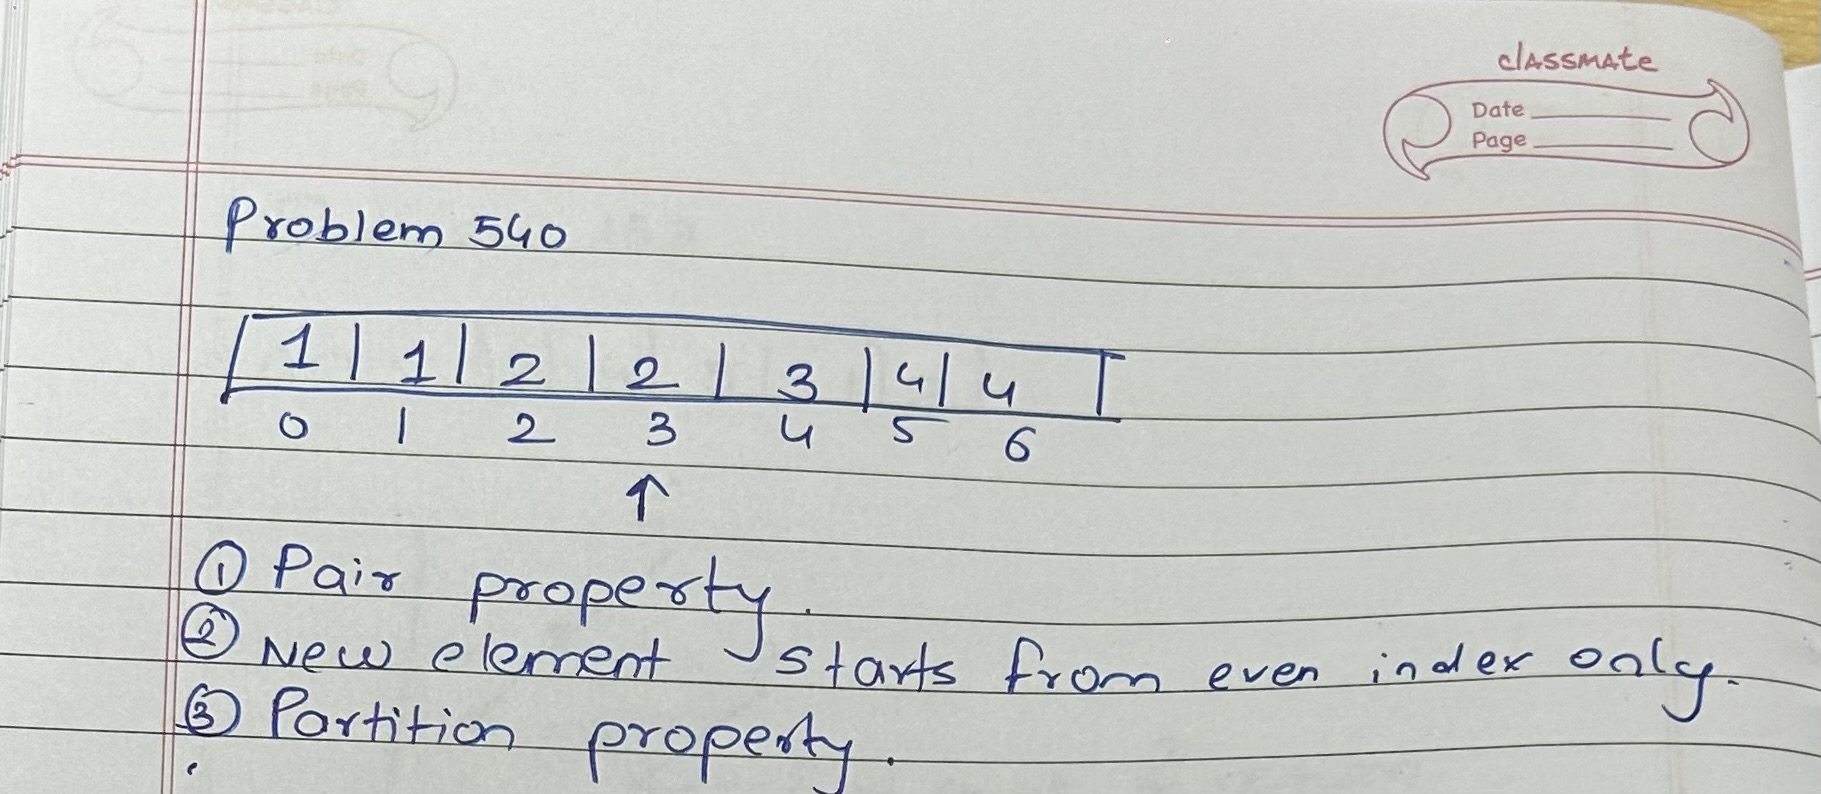 classmate
Date
Page
Problem 540
1 | 1 | 2 | 2 | 3 | 4 | 4
0 1 2 3 4 5 6
↑
① Pair property.
② New element starts from even index only.
③ Partition property.